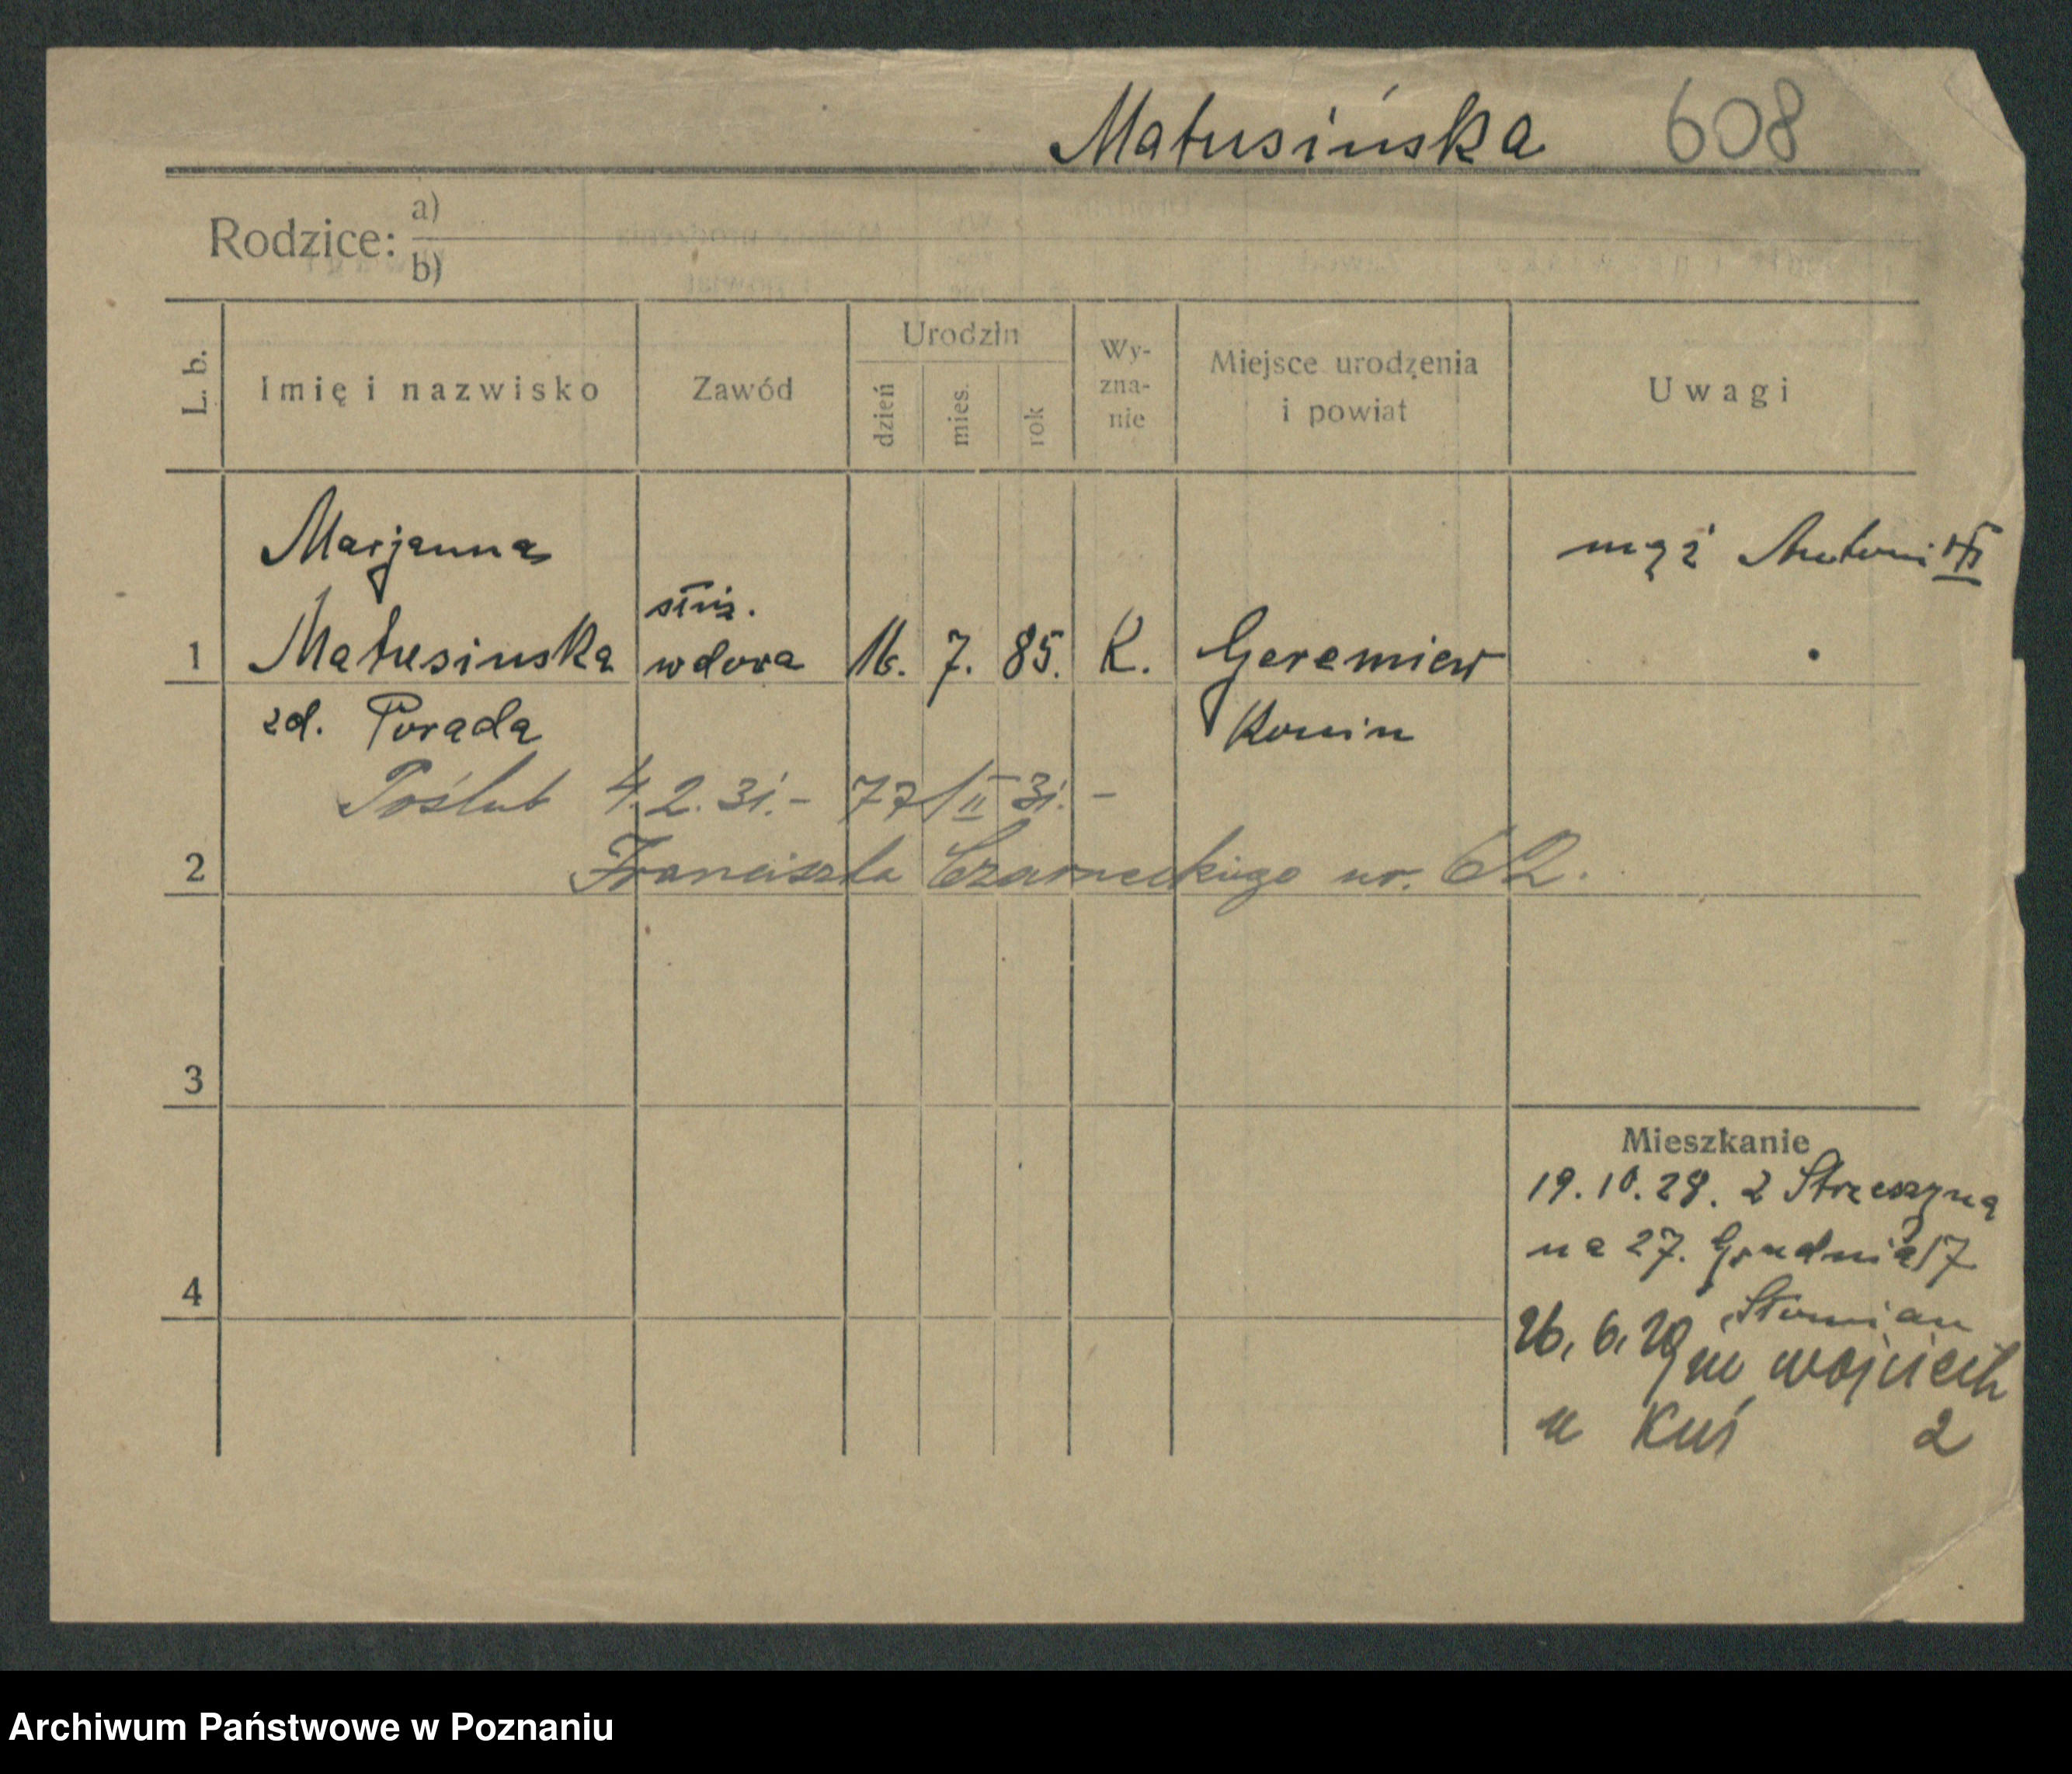 Matusińska 608
Rodzice: a)
b)
L. b.
Imię i nazwisko
Zawód
Urodzin
dzień
mies.
rok
Wy-
zna-
nie
Miejsce urodzenia
i powiat
Uwagi
Marjanna
mąż Antoni
służ.
1 Matusinska wdowa 16. 7. 85. K. Geremiew
zd. Porada Konin
Poślub 4.2.31.- 77/II 31.-
2 Franciszka Czarneckiego nr. 62.
3
Mieszkanie
19.10.28. z Strzeszyna
na 27. Grudnia 17
4
Słomian
26.6.29 św wojciech
u Kuś 2
Archiwum Państwowe w Poznaniu